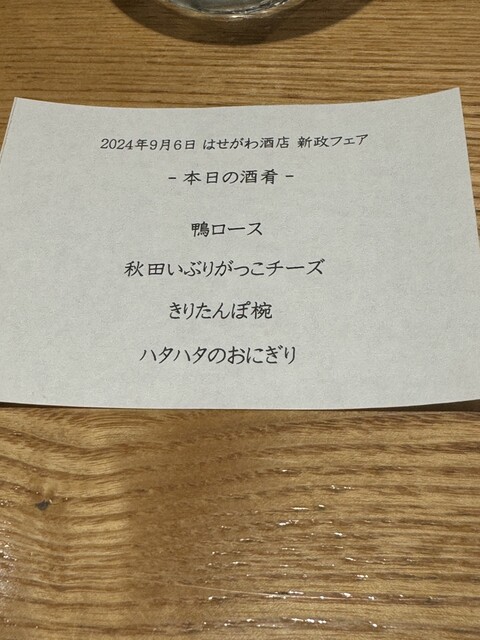 2024年9月6日 はせがわ酒店 新政フェア
- 本日の酒肴 -
鴨ロース
秋田いぶりがっこチーズ
きりたんぽ椀
ハタハタのおにぎり